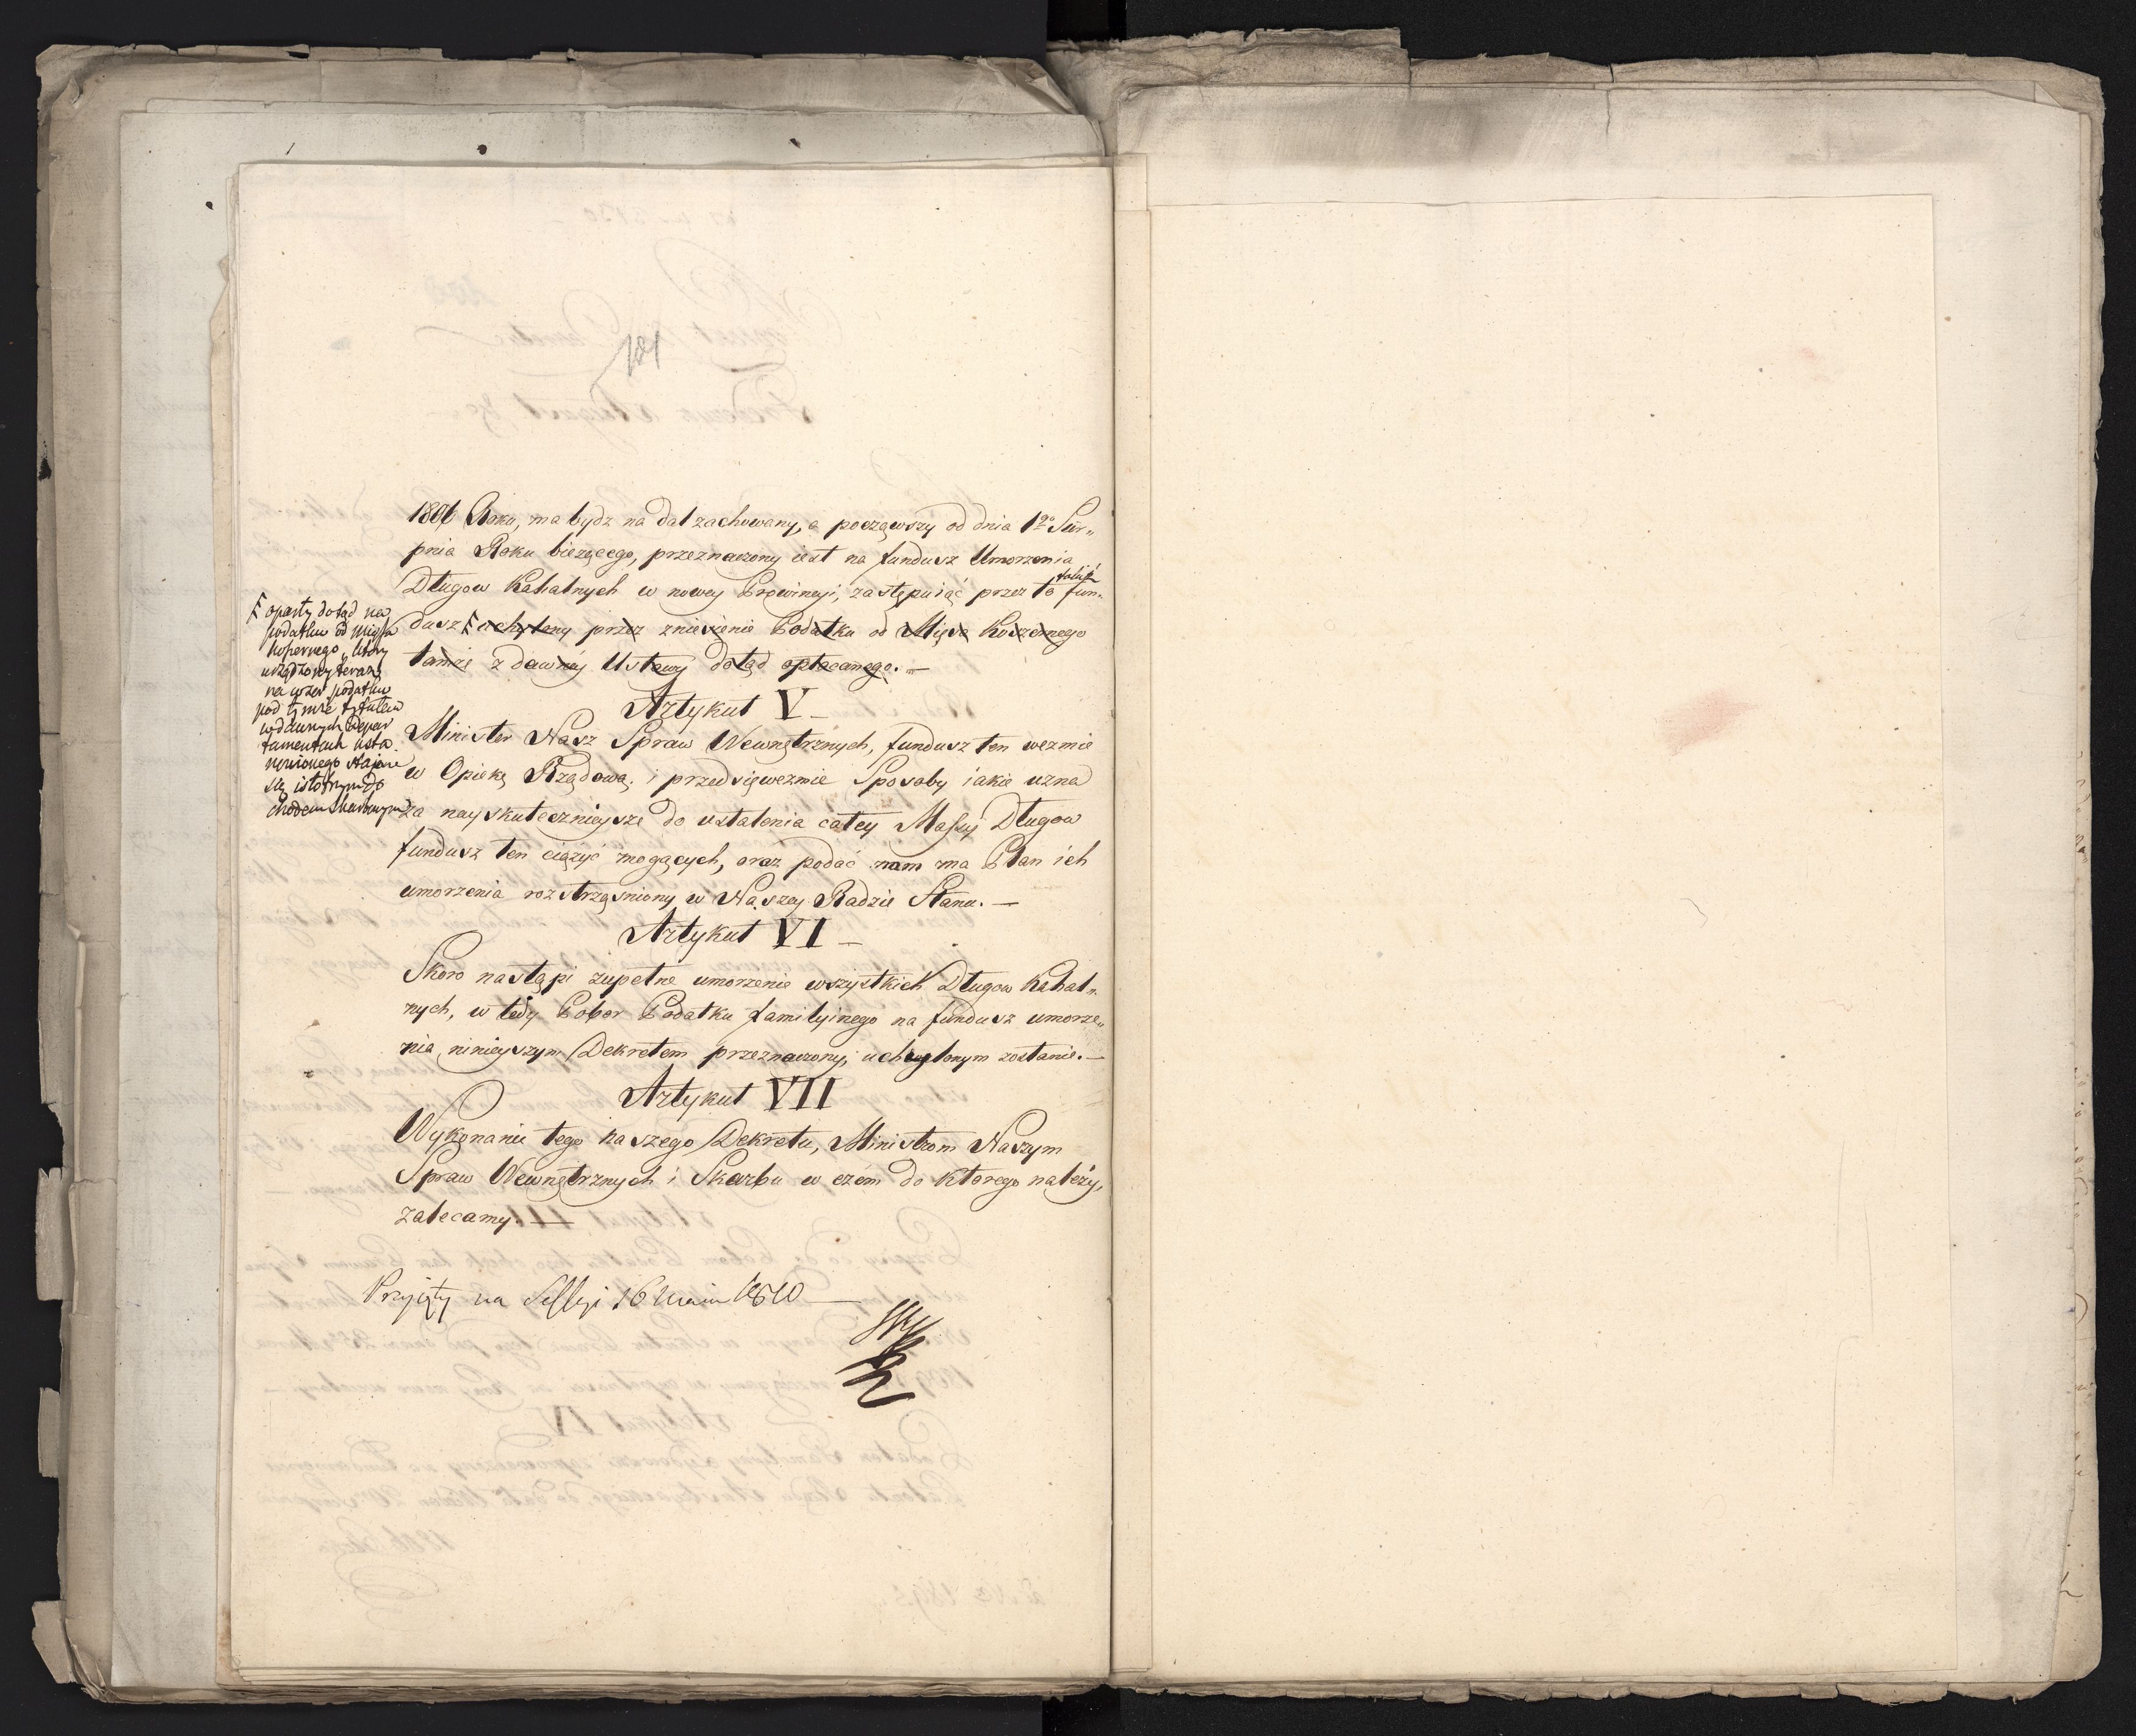 101
1806 Roku, ma bydz na dal zachowany, a począwszy od dnia 1go Sier„
pnia Roku bieżącego, przeznaczony iest na fundusz Umorzenia
Długow Kahalnych w nowey Prowincyi, zastępuiąć przez to takiż fun„
dusz uchylony przez zniesienie Podatku od Mięsa Koszernego
tamże z dawney Ustawy dotąd opłacanego. —
oparty dotąd na
podatku od mięsa
kosernego, ktory
urządzony teraz
na wzor podatku
pod tymże tytułem
w dawnych Depar
tamentach usta„
nowionego staie
się istotnym do
chodem skarbowym
Artykuł V —
Minister Nasz Spraw Wewnętrznych, fundusz ten weźmie
w Opiekę Rządową, i przedsięweźmie Sposoby iakie uzna
za nayskutecznieysze do ustalenia całey Massy Długow
fundusz ten ciążyć mogących, oraz podać nam ma Plan ich
umorzenia roztrząsniony w Naszey Radzie Stanu. —
Artykuł VI —
Skoro nastąpi zupełne umorzenie wszystkich Długow Kahal„
nych, w tedy Pobor Podatku familyinego na fundusz umorze„
nia ninieyszym Dekretem przeznaczony, uchylonym zostanie. —
Artykuł VII
Wykonanie tego naszego Dekretu, Ministrom Naszym
Spraw Wewnętrznych i Skarbu w czem do ktorego należy,
zalecamy. —
Przyięty na Sessyi 16 Maia 1810 —